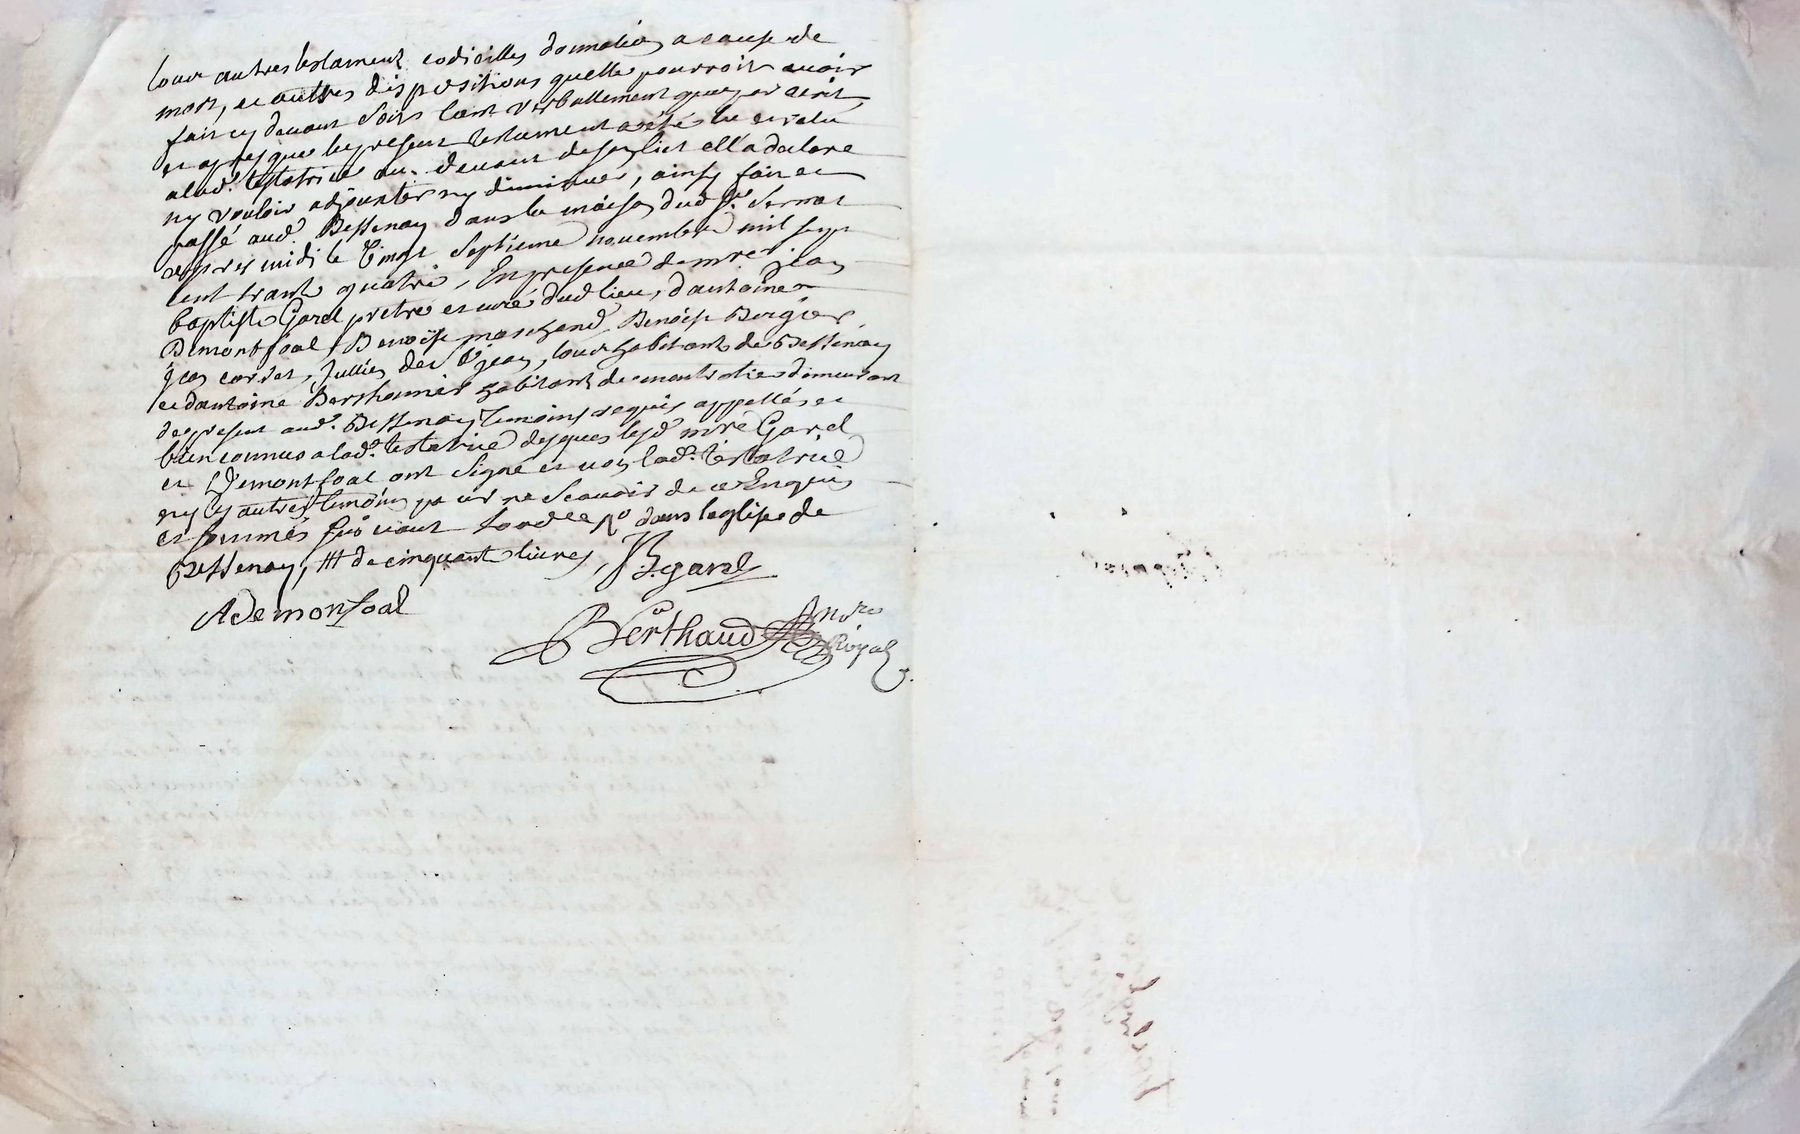 tous autres testament codicilles donnation a cause de
mort, et autres dispositions quelle pourroit avoir
fait cy devant soits tant verballement que par écrit,
et apres que le present testament a été lu et relu
a lad.e testatrice au devant de son lict ell'a declaré
ny vouloir adjouxter ny diminuer, ainsy fait et
passé aud. Bessenay dans la maison dud. Sr.
apres midi le vingt septieme novembre mil sept
cent trante quatre, En presence de mre jean
baptiste Garel pretre et curé dud lieu, d'antoine
Demontfoal, Benoist marchand, Benoist Bergier,
jean, Jullien de St jean, tous habitants de Bessenay
et d'antoine Berthonnier habitant de demeurant
de present aud. Bessenay temoins requis appellés et
bien connus a lad.e testatrice desquels lesd mre Garel
et Demontfoal ont signé et non lad.e testatrice
ny les autres temoins pour ne scavoir de ce Enquis
et sommés dans leglise de
Bessenay, de cinquante livres, JBgarel
ADemonfoal
Berthaud Nre
Royal